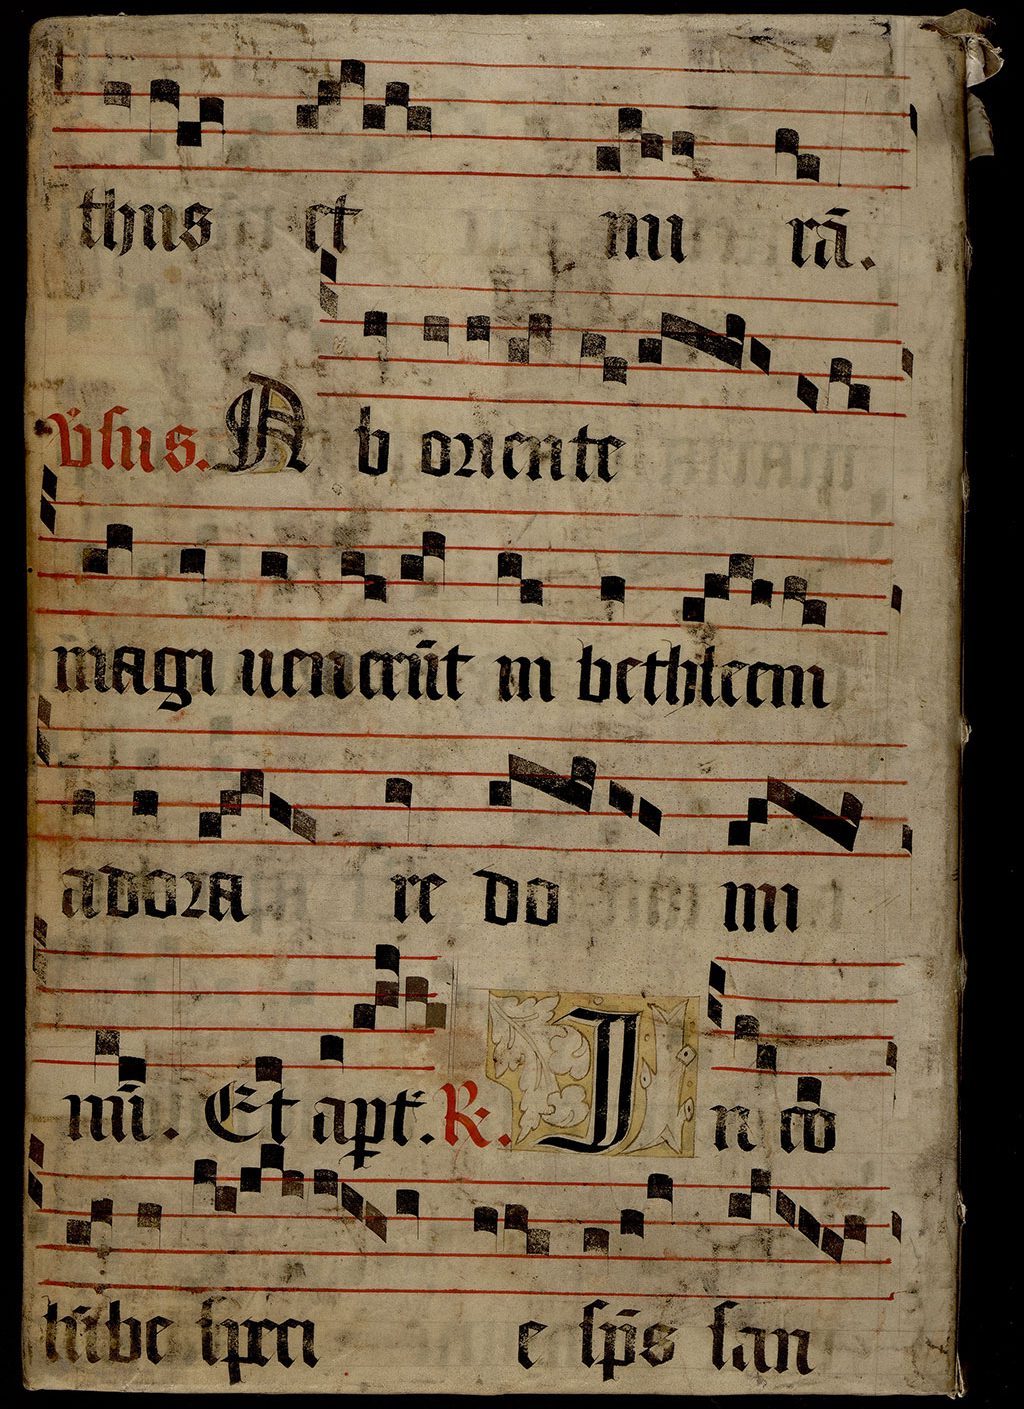 thus et mi rā.
v̄sus. A b oriente
magi uenerūt in bethleem
adora re do mi
nū. Et apt̄. R. I n co
lūbe speci e sp̄s san